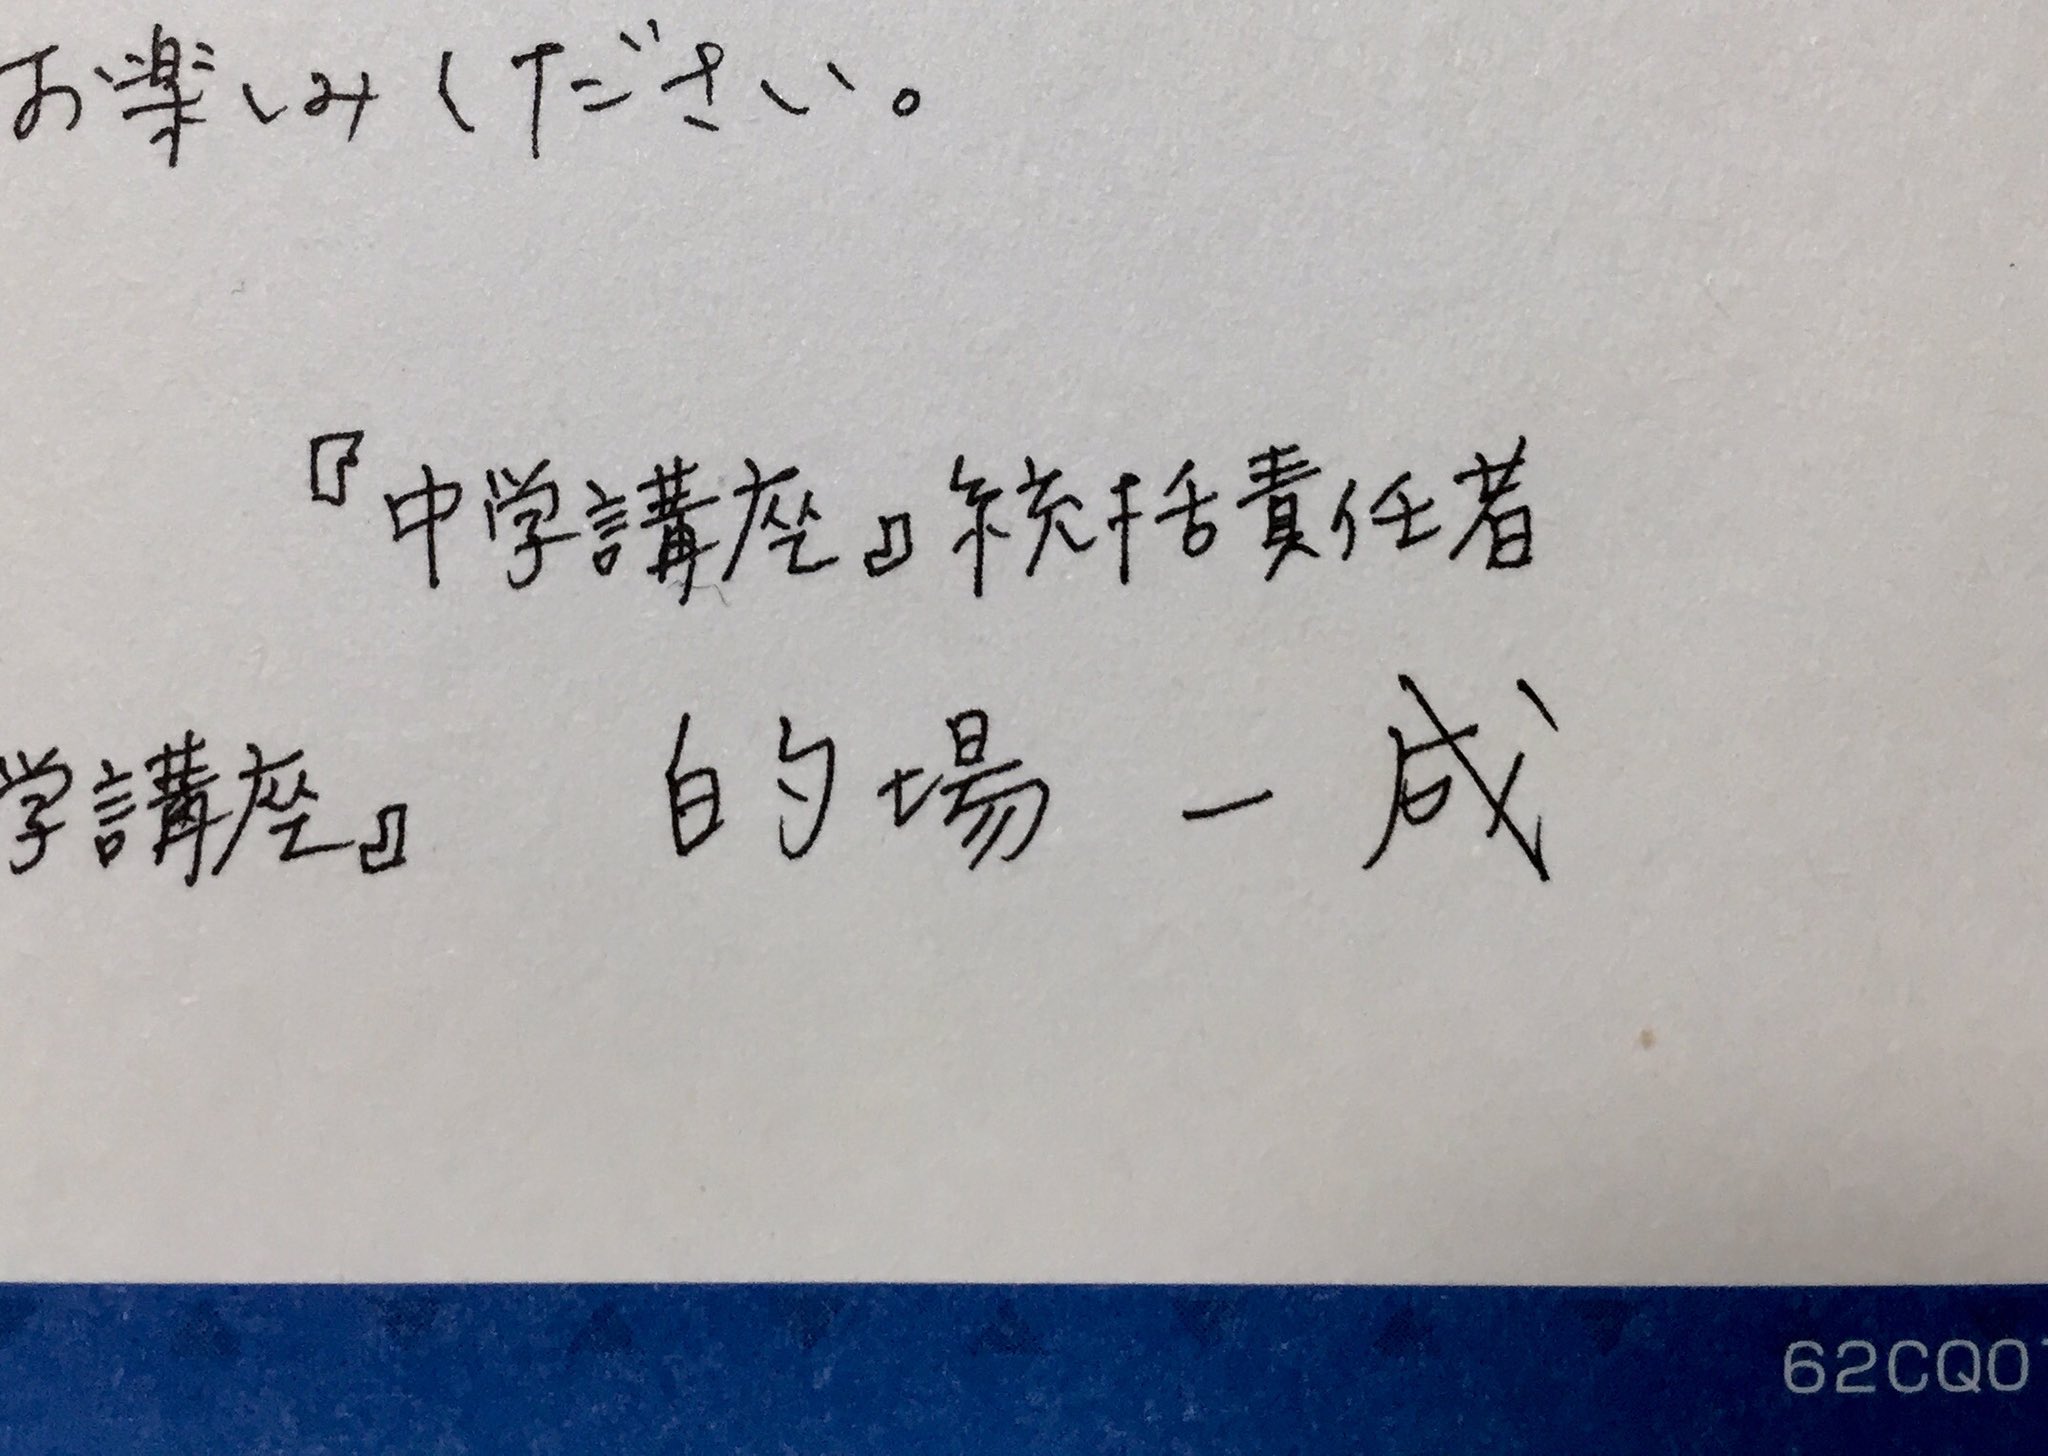 お楽しみください。
『中学講座』統括責任者
学講座』 的場 一成
62CQ0